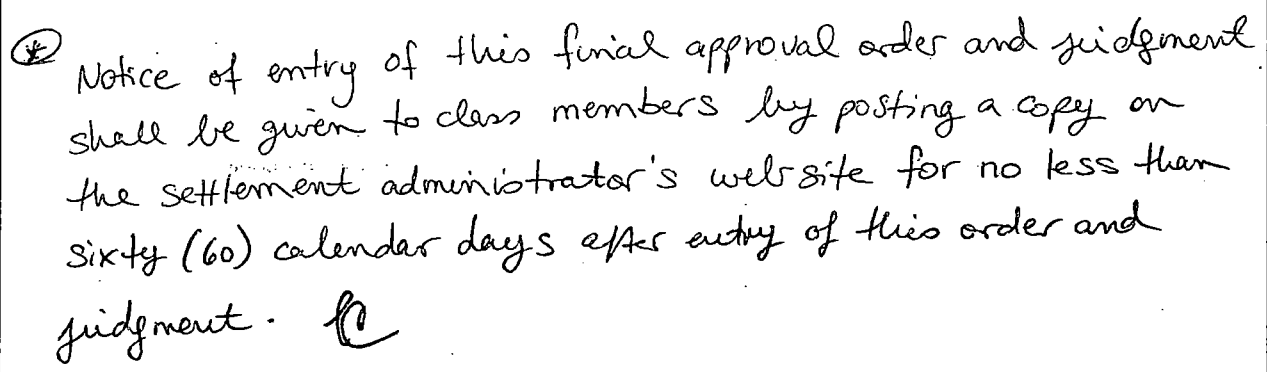 * Notice of entry of this final approval order and judgment
shall be given to class members by posting a copy on
the settlement administrator's website for no less than
sixty (60) calendar days after entry of this order and
judgment.